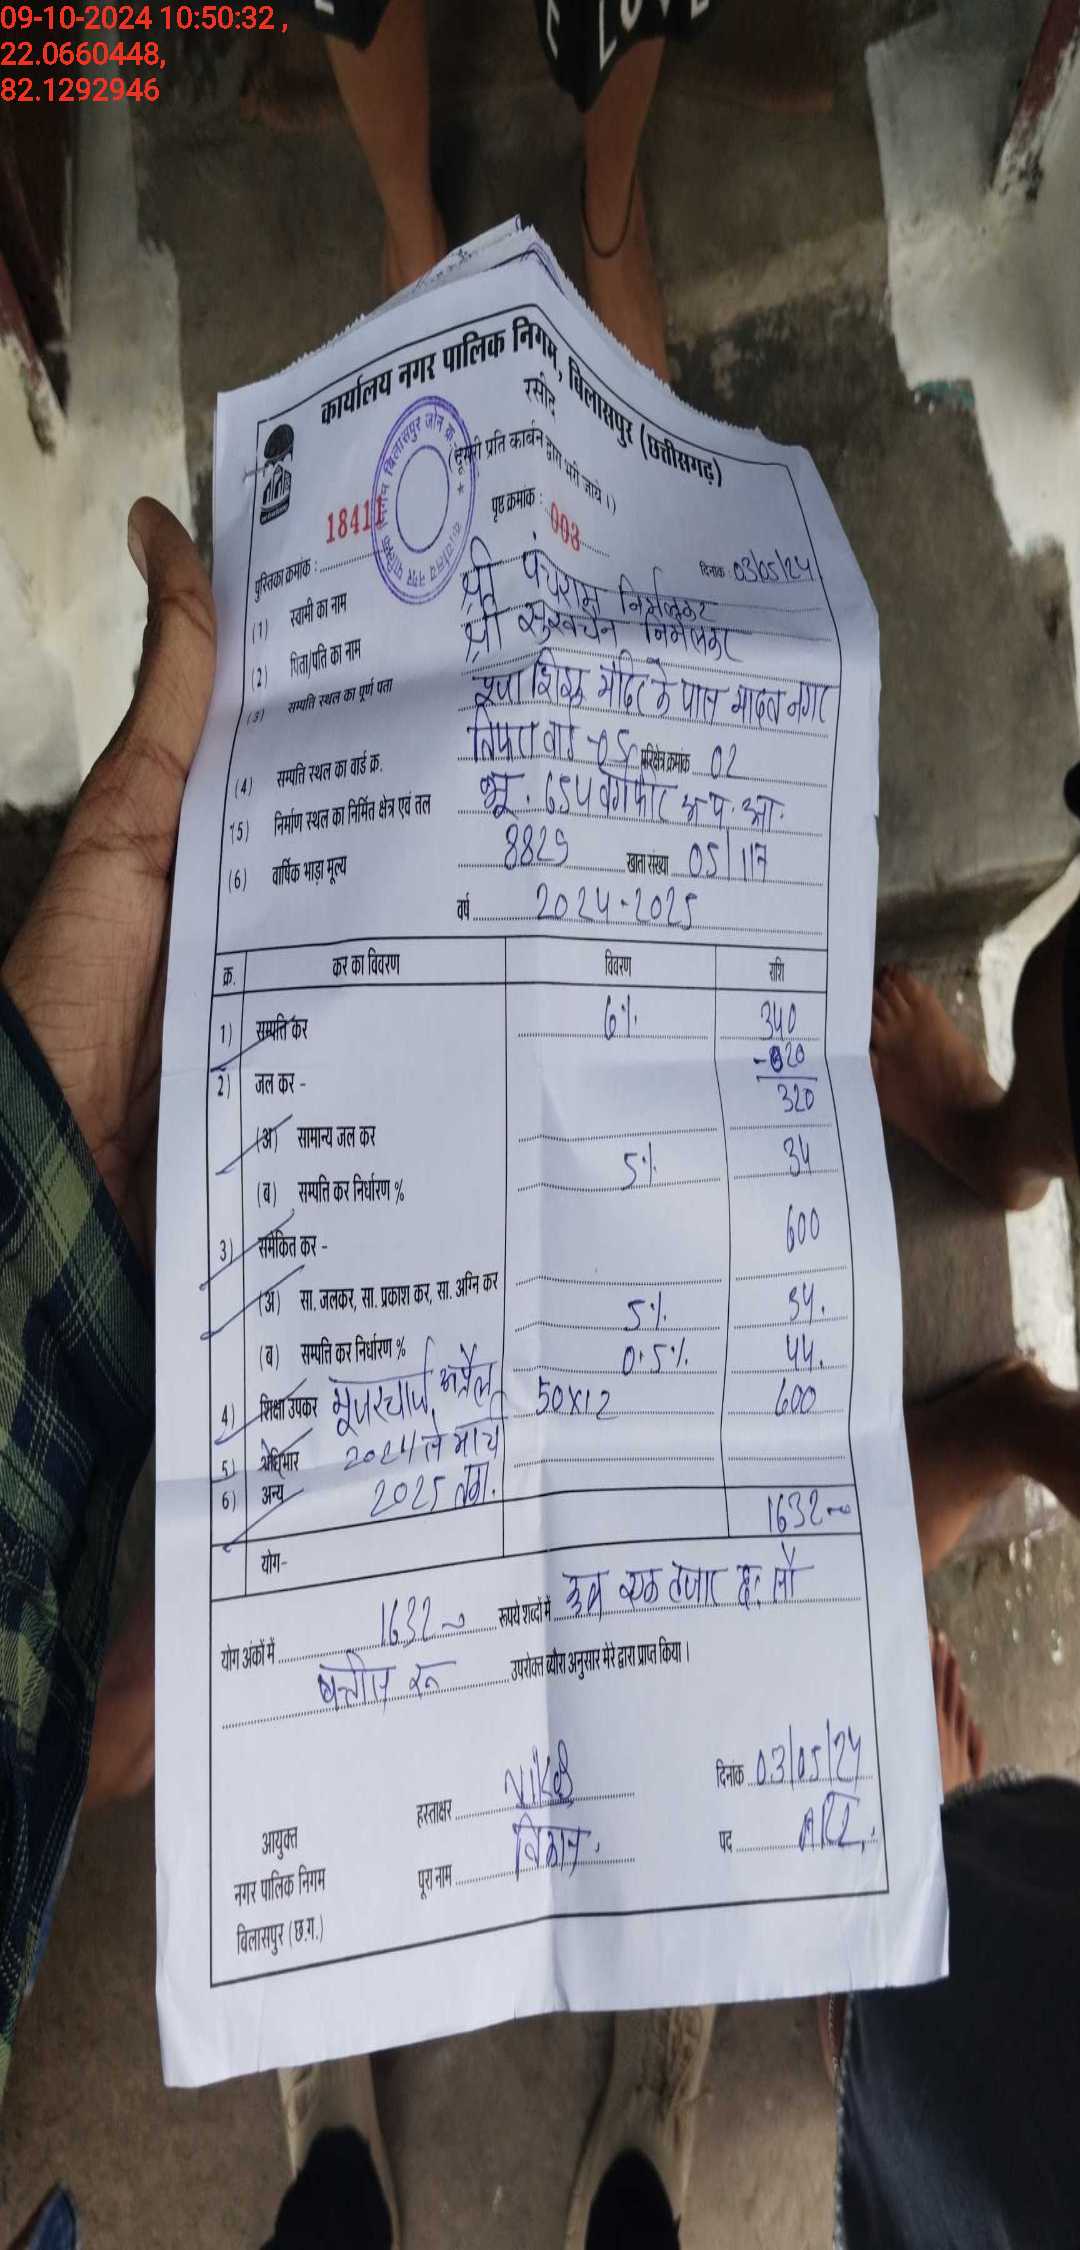 09-10-2024 10:50:32 ,
22.0660448,
82.1292946
कार्यालय नगर पालिक निगम, बिलासपुर (छत्तीसगढ़)
रसीद
प्रति कार्बन द्वारा भरी जाये।)
पुस्तिका क्रमांक : 18411 पृष्ठ क्रमांक : 003
दिनांक 03/05/24
(1) स्वामी का नाम श्री पंचराम निर्मलकर
(2) पिता/पति का नाम श्री सुखचैन निर्मलकर
(3) सम्पत्ति स्थल का पूर्ण पता मंदिर के पास यादव नगर
(4) सम्पत्ति स्थल का वार्ड क्र. तिफरा वार्ड -05 परिक्षेत्र क्रमांक 02
(5) निर्माण स्थल का निर्मित क्षेत्र एवं तल भू. 654 वर्गफीट अ.प. आ.
(6) वार्षिक भाड़ा मूल्य 8829 खाता संख्या 05/117
वर्ष 2024-2025
क्र. कर का विवरण विवरण राशि
1) सम्पत्ति कर 6% 340
-20
320
2) जल कर -
(अ) सामान्य जल कर
(ब) सम्पत्ति कर निर्धारण % 5% 34
3) समेकित कर - 600
(अ) सा. जलकर, सा. प्रकाश कर, सा. अग्नि कर
(ब) सम्पत्ति कर निर्धारण % 5% 34.
4) शिक्षा उपकर 0.5% 44.
यूजरचार्ज अप्रैल 50x12 600
5) अधिभार 2024 से मार्च
6) अन्य 2025 तक.
योग- 1632
योग अंकों में 1632 रूपये शब्दों में एक हजार छः सौ
बत्तीस रू उपरोक्त ब्यौरा अनुसार मेरे द्वारा प्राप्त किया।
हस्ताक्षर दिनांक 03/05/24
आयुक्त
नगर पालिक निगम पूरा नाम विकास. पद
बिलासपुर (छ.ग.)